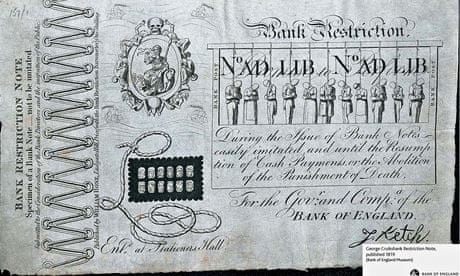 Bank Restriction.
BANK RESTRICTION NOTE
Specimen of a Bank Note — not to be imitated.
Submitted to the Consideration of the Bank Directors and the inspection of the Public.
BANK POST
No. AD LIB No. AD LIB
BANK POST
During the Issue of Bank Notes
easily imitated, and until the Resump
tion of Cash Payments, or the Abolition
of the Punishment of Death,
For the Govr. and Compa. of the
BANK OF ENGLAND.
J. Ketch
Entd. at Stationers Hall
George Cruikshank Restriction Note,
published 1819
(Bank of England Museum)
BANK OF ENGLAND